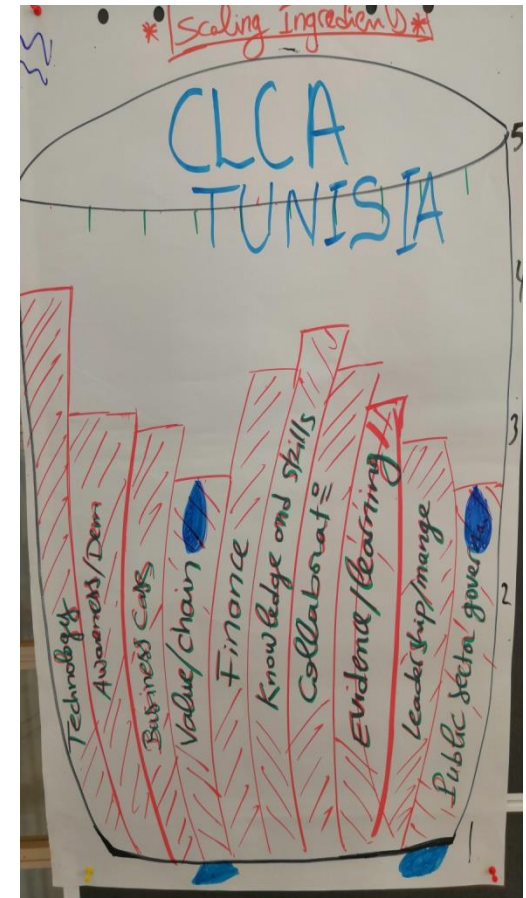 * Scaling Ingredients *
CLCA
TUNISIA
5
4
3
2
1
Technology
Awarness/Dem
Business Case
Value/chain
Finance
Knowledge and skills
Collaborat°
Evidence/learning
Leadership/mange
Public sector govern